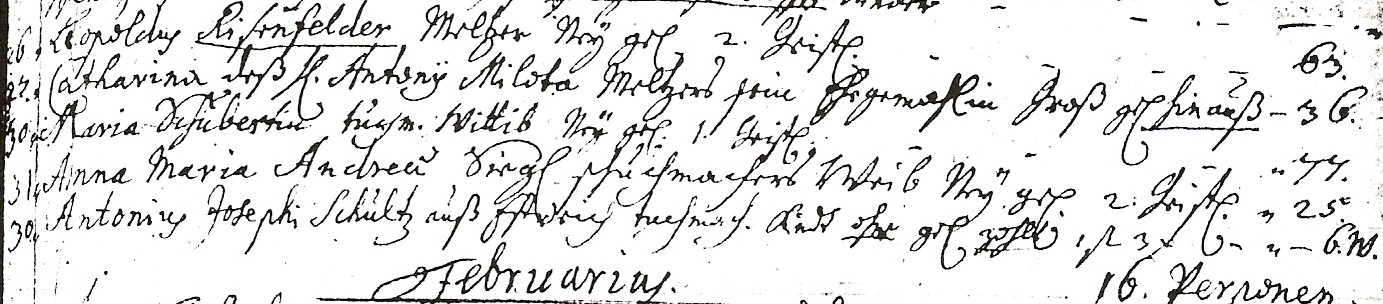 26. Leopoldus Eisenfelder Meltzer Neÿ gel. 2. Geistl. 63.
27. Catharina deß H. Antonÿ Milota Meltzers sein Ehegemahlin Groß gel. hinauß - 36.
30. Maria Schubertin tuchm. Wittib Neÿ gel. 1. Geistl. " 77.
31. Anna Maria Andreæ Siegl schuchmachers Weib Neÿ gel. 2. Geistl. " 25.
30. Antonius Josephi Schultz auß tuchmach. Kindt gel. 6. W.
Februarius. 16. Personen